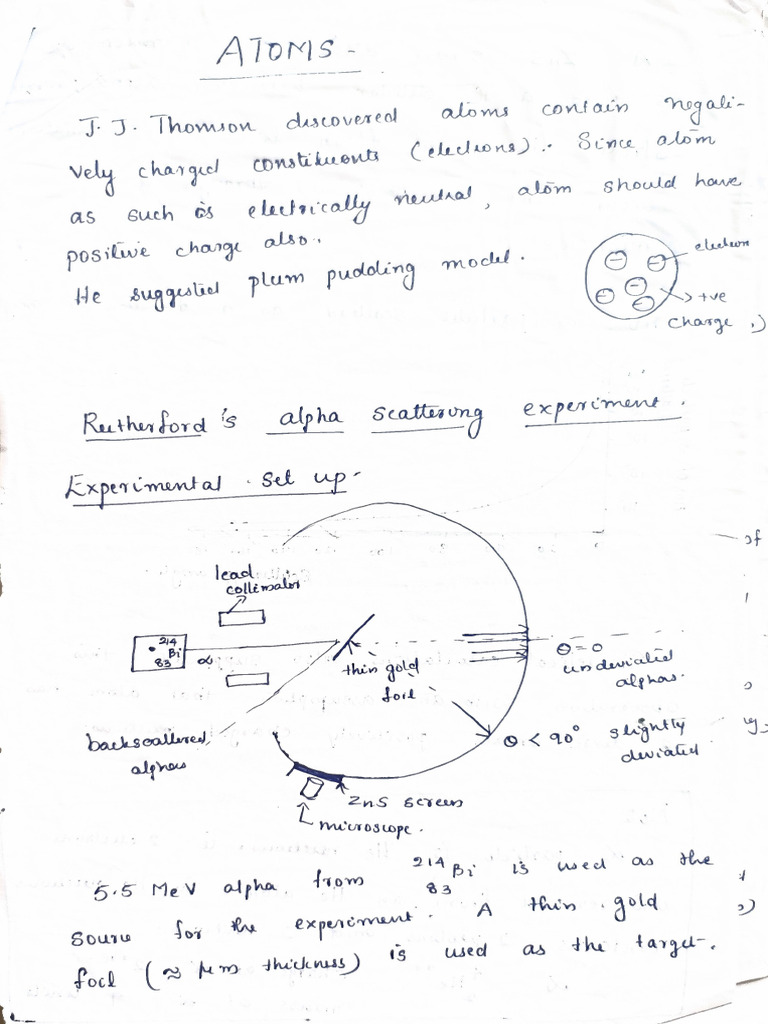 ATOMS -
J. J. Thomson discovered atoms contain negati-
vely charged constituents (electrons). Since atom
as such is electrically neutral, atom should have
positive charge also.
He suggested plum pudding model.
electron
+ve
charge
Rutherford's alpha scattering experiment.
Experimental set up -
lead
collimator
214
Bi
83
α
thin gold
foil
θ = 0
undeviated
alphas.
backscattered
alphas
θ < 90° slightly
deviated
ZnS screen
microscope.
5.5 MeV alpha from ²¹⁴₈₃Bi is used as the
source for the experiment. A thin gold
foil (≈ μm thickness) is used as the target.
of